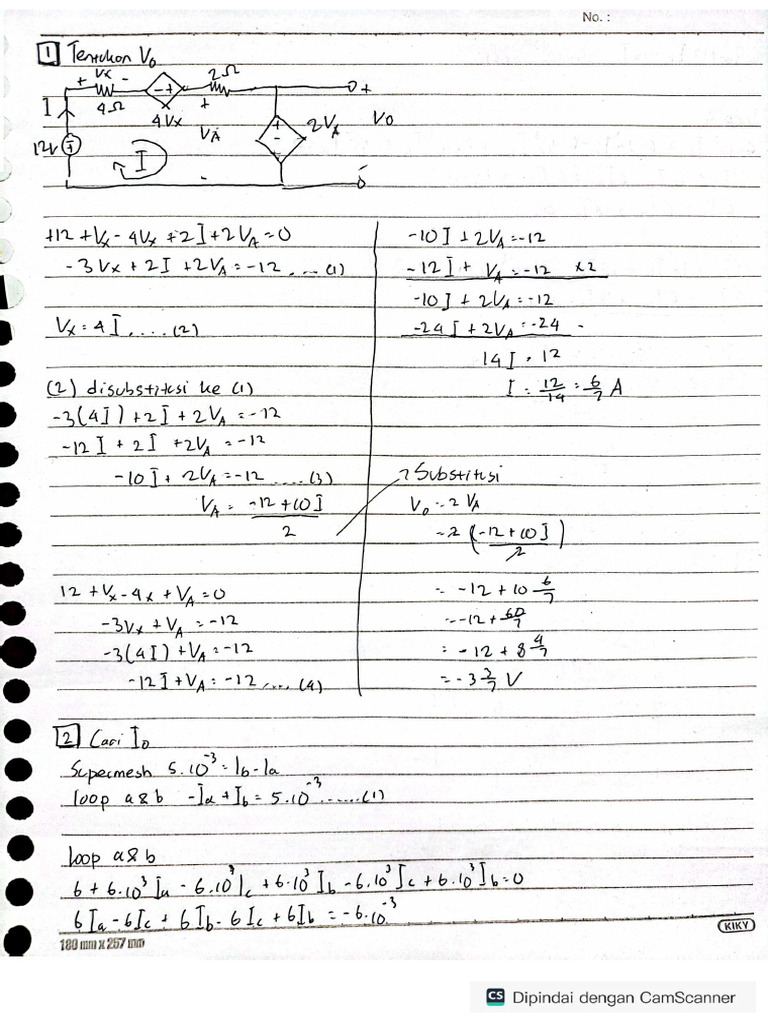 No. :
1 Tentukan V₀
+ Vx - 2Ω
4Ω - + + 4Vx
I
12V + I VA - + - 2VA + V0 -
+12 + Vx - 4Vx + 2I + 2VA = 0
-3Vx + 2I + 2VA = -12 .... (1)
Vx = 4I .... (2)
(2) disubstitusi ke (1)
-3(4I) + 2I + 2VA = -12
-12I + 2I + 2VA = -12
-10I + 2VA = -12 .... (3)
VA = -12 + 10I / 2
12 + Vx - 4x + VA = 0
-3Vx + VA = -12
-3(4I) + VA = -12
-12I + VA = -12 .... (4)
-10I + 2VA = -12
-12I + VA = -12 x2
-10I + 2VA = -12
-24I + 2VA = -24 -
14I = 12
I = 12/14 = 6/7 A
Substitusi
V₀ = 2 VA
= 2 (-12 + 10I / 2)
= -12 + 10 6/7
= -12 + 60/7
= -12 + 8 4/7
= -3 3/7 V
2 Cari I₀
Supermesh 5.10⁻³ = Ib - Ia
loop a&b -Ia + Ib = 5.10⁻³ ......(1)
loop a&b
6 + 6.10³ Ia - 6.10³ Ic + 6.10³ Ib - 6.10³ Ic + 6.10³ Ib = 0
6Ia - 6Ic + 6Ib - 6Ic + 6Ib = -6.10⁻³
180 mm x 257 mm
KIKY
CS Dipindai dengan CamScanner